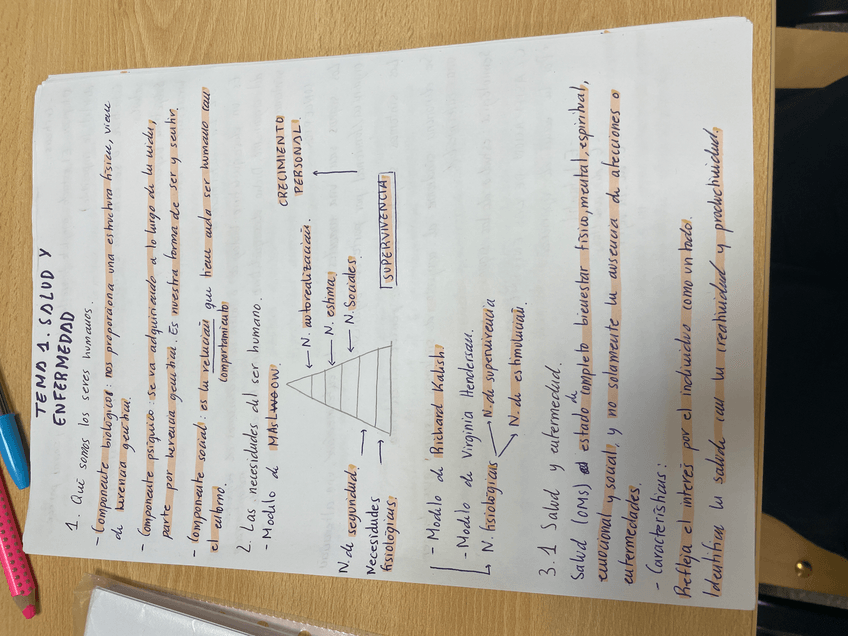 TEMA 1. SALUD Y
ENFERMEDAD
1. Qué somos los seres humanos.
- Componente biológico: nos proporciona una estructura física, viene
de herencia genética.
- Componente psíquico: se va adquiriendo a lo largo de la vida,
parte por herencia genética. Es nuestra forma de ser y sentir.
- Componente social: es la relación que tiene cada ser humano con
el entorno. comportamiento
2. Las necesidades del ser humano.
- Modelo de MASLWOOW.
CRECIMIENTO
PERSONAL.
← N. autorrealización.
← N. estima,
← N. Sociales
N. de seguridad,
Necesidades
fisiológicas,
SUPERVIVENCIA
- Modelo de Richard Kalish
- Modelo de Virginia Henderson.
N. fisiológicas
N. de supervivencia
N. de estimulación.
3.1 Salud y enfermedad.
Salud (OMS) estado de completo bienestar físico, mental, espiritual,
emocional y social, y no solamente la ausencia de afecciones o
enfermedades.
- Características:
Refleja el interés por el individuo como un todo.
Identifica la salud con la creatividad y productividad.